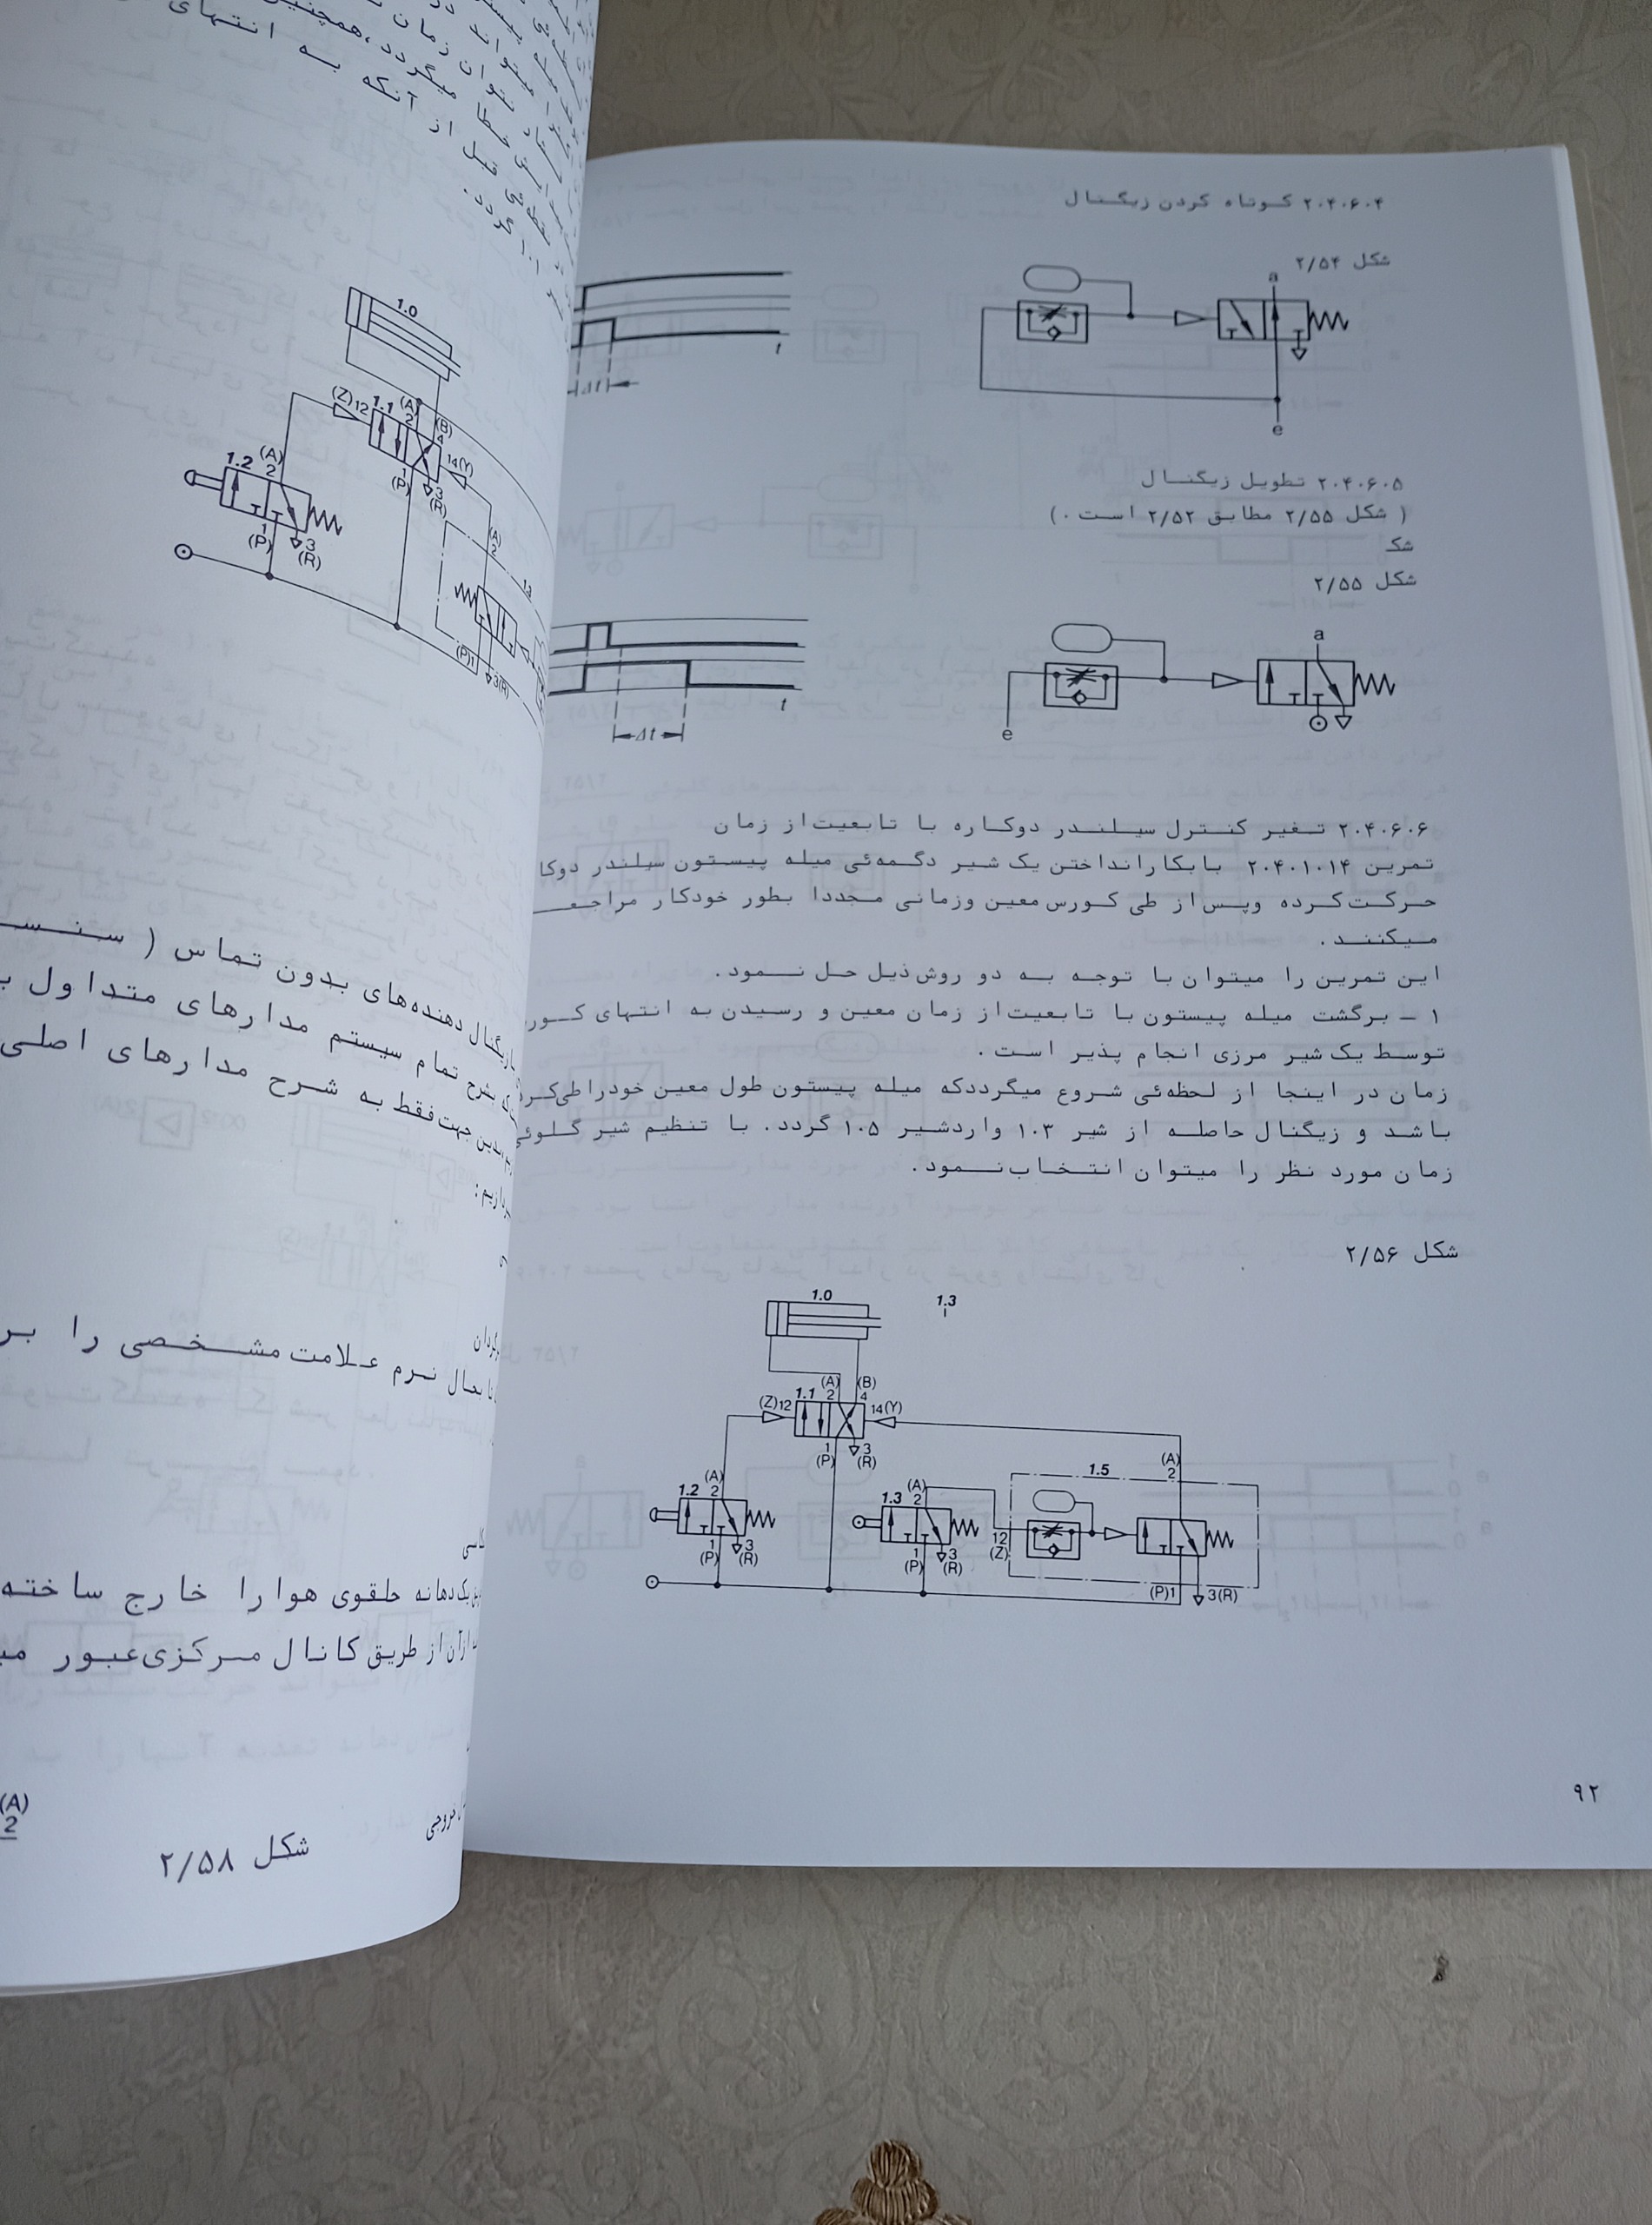 ۲.۴.۶.۴ کوتاه کردن زیگنال
شکل ۲/۵۴
a
e
t
Δt
۲.۴.۶.۵ تطویل زیگنال
( شکل ۲/۵۵ مطابق ۲/۵۲ است . )
شک
شکل ۲/۵۵
a
e
t
Δt
۲.۴.۶.۶ تغیر کنترل سیلندر دوکاره با تابعیت از زمان
تمرین ۲.۴.۱.۱۴ بابکارانداختن یک شیر دگمه‌ئی میله پیستون سیلندر دوکا
حرکت کرده وپس از طی کورس معین وزمانی مجددا بطور خودکار مراجعه
میکنند .
این تمرین را میتوان با توجه به دو روش ذیل حل نمود.
۱ - برگشت میله پیستون با تابعیت از زمان معین و رسیدن به انتهای کور
توسط یک شیر مرزی انجام پذیر است .
زمان در اینجا از لحظه‌ئی شروع میگرددکه میله پیستون طول معین خودرا طی‌کرد
باشد و زیگنال حاصله از شیر ۱.۳ واردشیر ۱.۵ گردد. با تنظیم شیر گلوئی
زمان مورد نظر را میتوان انتخاب نمود.
شکل ۲/۵۶
1.0 1.3
(A) (B)
1.1 2 4
(Z)12 14(Y)
1 3
(P) (R)
(A) (A) 1.5 (A)
1.2 2 1.3 2 2
12
(Z)
1 3 1 3
(P) (R) (P) (R)
(P)1 3(R)
۹۲
میگردد،همچنین
قبل از آنکه به انتهای
گردد.
1.0
(Z)12 1.1 (A)
2 (B)
4
1.2 (A)
2
14(Y)
1
(P) 3
(R)
(A)
2
1
(P) 3
(R)
13
(P)1
3(R)
زیگنال دهنده‌های بدون تماس ( سنس
شرح تمام سیستم مدارهای متداول ب
بدین جهت فقط به شرح مدارهای اصلی
نرم علامت مشخصی را بر
یک دهانه حلقوی هوا را خارج ساخته
از آن از طریق کانال مرکزی عبور می
(A)
2
شکل ۲/۵۸